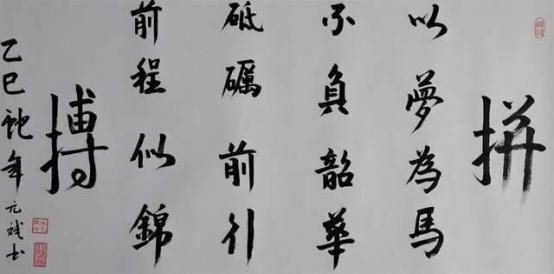 拼
以夢為馬
不負韶華
砥礪前行
前程似錦
搏
乙巳蛇年元斌书